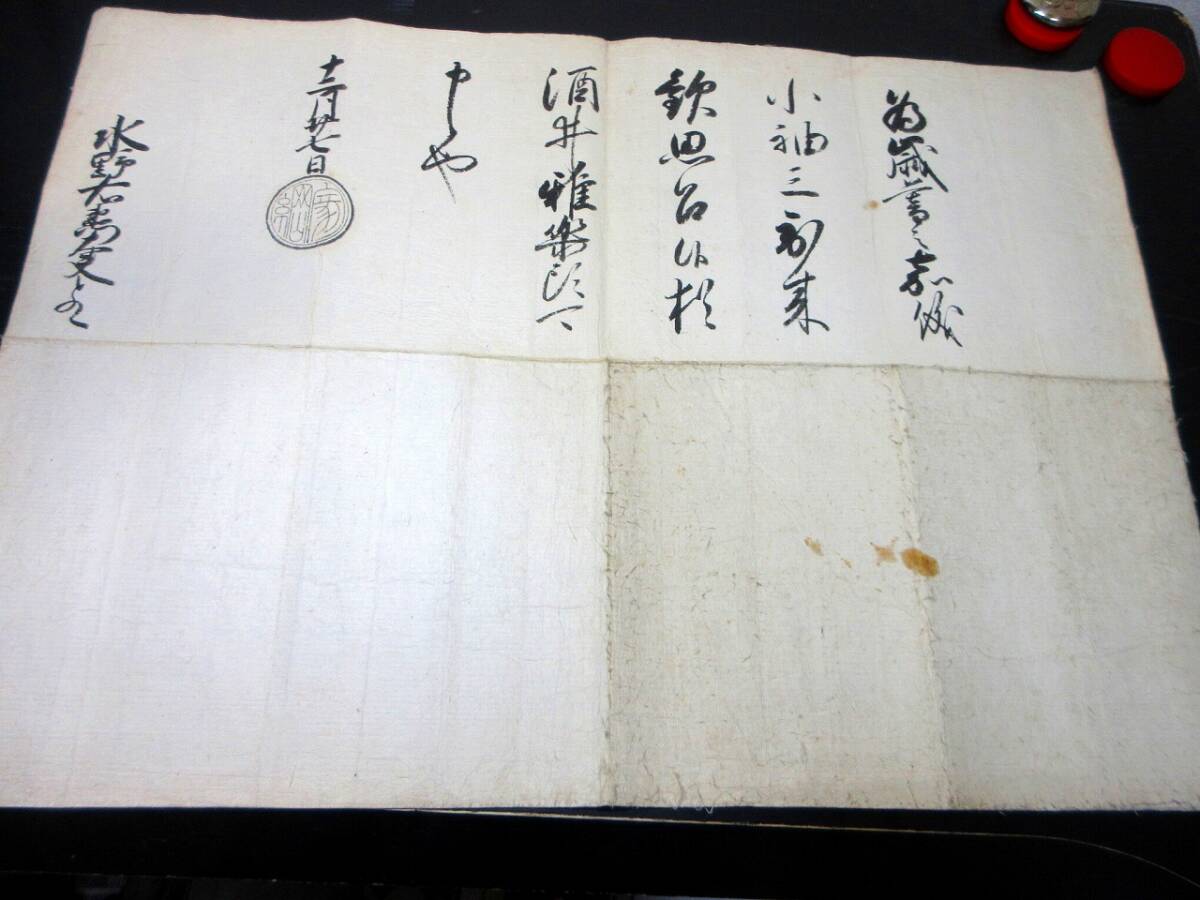 為歳暮之嘉儀
小袖三到来
歓思召候猶
酒井雅楽頭可
申候也
十二月廿七日
家綱
水野右衛門大夫とのへ